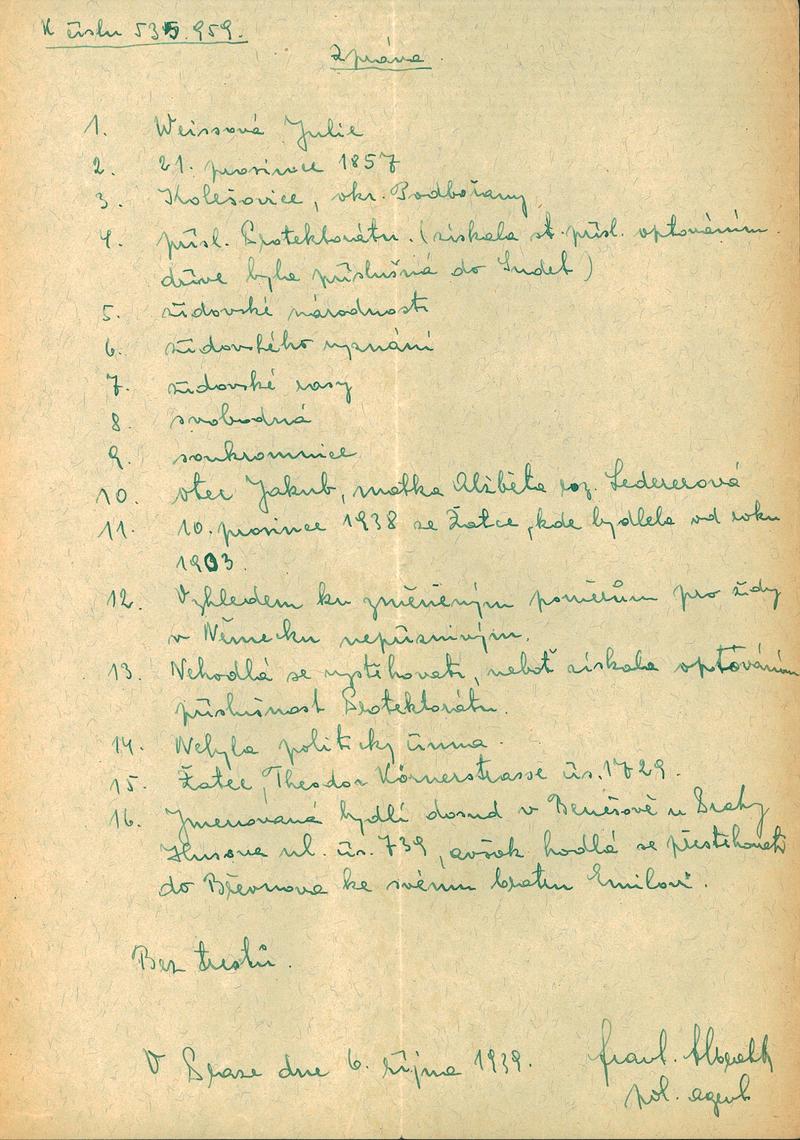 K číslu 535.959.
Zpráva
1. Weissová Julie
2. 21. prosince 1857
3. Kolešovice, okr. Podbořany
4. přísl. Protektorátu. (získala st. přísl. optováním
dříve byla příslušná do Sudet)
5. židovské národnosti
6. židovského vyznání
7. židovské rasy
8. svobodná
9. soukromnice
10. otec Jakub, matka Alžběta roz. Ledererová
11. 10. prosince 1938 ze Žatce, kde bydlela od roku
1903.
12. Vzhledem ku změněným poměrům pro židy
v Německu nepříznivým.
13. Nehodlá se vystěhovati, neboť získala optováním
příslušnost Protektorátu.
14. Nebyla politicky činna.
15. Žatec, Theodor Körnerstrasse čís. 1729.
16. Jmenovaná bydlí dosud v Benešově u Prahy
Husova ul. čís. 739, avšak hodlá se přestěhovati
do Břevnova ke svému bratru Emilovi.
Bez trestů.
V Praze dne 6. října 1939. Frant. Albrecht
pol. agent